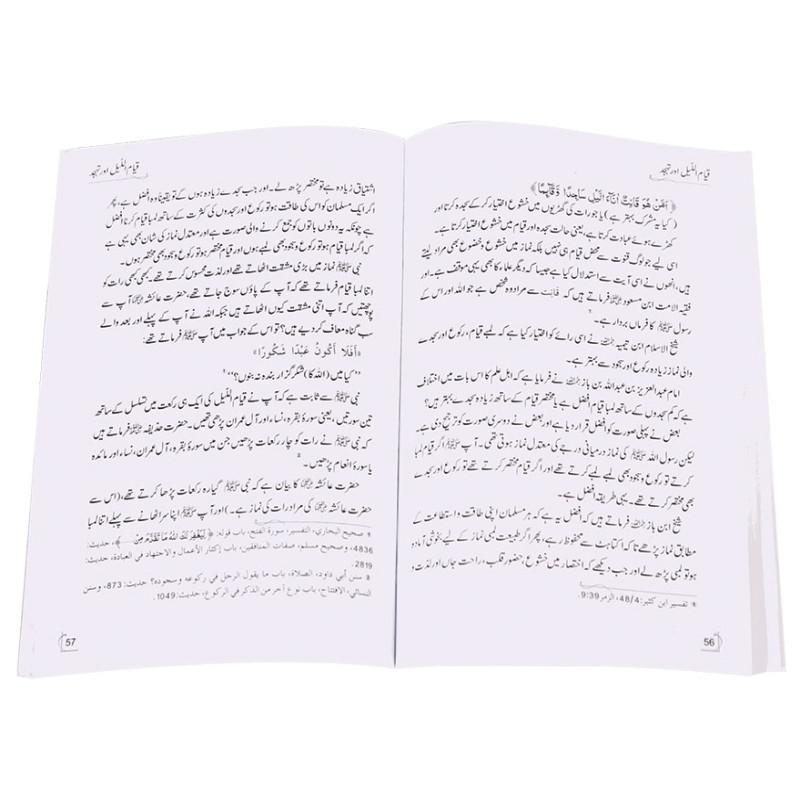 قیام اللیل اور تہجد
﴿ اَمَّنْ هُوَ قَانِتٌ اٰنَآءَ الَّيْلِ سَاجِدًا وَّقَآىِٕمًا ﴾
(کیا یہ مشرک بہتر ہے) یا جو رات کی گھڑیوں میں خشوع اختیار کر کے سجدہ کرتا اور
کھڑے ہوئے عبادت کرتا ہے، یعنی حالت سجدہ اور قیام میں خشوع اختیار کرتا ہے۔
اسی لیے جو لوگ قنوت سے محض قیام ہی نہیں بلکہ نماز میں خشوع و خضوع بھی مراد لیتے
ہیں، انھوں نے اسی آیت سے استدلال کیا ہے جیسا کہ دیگر علماء کا بھی یہی موقف ہے اور
فقیہ الامت ابن مسعود رضی اللہ عنہ فرماتے ہیں کہ قانت سے مراد وہ شخص ہے جو اللہ اور اس کے
رسول ﷺ کا فرماں بردار ہے۔
شیخ الاسلام ابن تیمیہ رحمہ اللہ نے اسی رائے کو اختیار کیا ہے کہ لمبے قیام، رکوع اور سجدے
والی نماز زیادہ رکوع اور سجود سے بہتر ہے۔
امام عبدالعزیز بن عبداللہ بن باز رحمہ اللہ نے فرمایا ہے کہ اہل علم کا اس بات میں اختلاف
ہے کہ کم سجدوں کے ساتھ لمبا قیام افضل ہے یا مختصر قیام کے ساتھ زیادہ سجدے بہتر ہیں؟
بعض نے پہلی صورت کو افضل قرار دیا ہے اور بعض نے دوسری صورت کو ترجیح دی ہے۔
لیکن رسول اللہ ﷺ کی نماز درمیانی درجے کی معتدل نماز ہوتی تھی۔ آپ ﷺ اگر قیام لمبا
کرتے تو رکوع و سجود بھی لمبے لمبے کرتے تھے اور اگر قیام مختصر کرتے تھے تو رکوع اور سجدے
بھی مختصر کرتے تھے۔ یہی طریقہ افضل ہے۔
شیخ ابن باز رحمہ اللہ فرماتے ہیں کہ افضل یہ ہے کہ ہر مسلمان اپنی طاقت و استطاعت کے
مطابق نماز پڑھے تا کہ اکتاہٹ سے محفوظ رہے، پھر اگر طبیعت لمبی نماز کے لیے بخوشی آمادہ
ہو تو لمبی پڑھ لے اور جب دیکھے کہ اختصار میں خشوع، حضور قلب، راحت جاں اور لذت و
تفسیر ابن کثیر: 48/4، الزمر 9:39.
56
قیام اللیل اور تہجد
اشتیاق زیادہ ہے تو مختصر پڑھ لے۔ اور جب سجدے زیادہ ہوں گے تو یقیناً وہ افضل ہے، پھر
اگر ایک مسلمان کو اس کی طاقت ہو تو رکوع اور سجدوں کی کثرت کے ساتھ لمبا قیام کرنا افضل
ہے چونکہ یہ دونوں باتوں کو جمع کرنے والی صورت ہے اور معتدل نماز کی شان بھی یہی ہے
کہ اگر لمبا قیام ہو تو رکوع و سجود بھی لمبے ہوں اور قیام مختصر ہو تو رکوع و سجود بھی مختصر ہوں۔
نبی ﷺ نماز میں بڑی مشقت اٹھاتے تھے اور لذت محسوس کرتے تھے۔ کبھی کبھی رات کو
قیام فرماتے تھے کہ آپ کے پاؤں سوج جاتے تھے، حضرت عائشہ رضی اللہ عنہا آپ سے
پوچھتیں کہ آپ اتنی مشقت کیوں اٹھاتے ہیں جبکہ اللہ نے آپ کے پہلے اور بعد والے
سب گناہ معاف کر دیے ہیں؟ تو اس کے جواب میں آپ ﷺ فرماتے تھے:
«أَفَلَا أَكُونُ عَبْدًا شَكُورًا»
”کیا میں (اللہ کا) شکر گزار بندہ نہ بنوں؟“
نبی ﷺ سے ثابت ہے کہ آپ نے قیام اللیل کی ایک ہی رکعت میں تسلسل کے ساتھ
تین سورتیں، یعنی سورۂ بقرہ، نساء، اور آل عمران پڑھی تھیں۔ حضرت حذیفہ رضی اللہ عنہ فرماتے ہیں
کہ نبی ﷺ نے رات کو چار رکعات پڑھیں جن میں سورۂ بقرہ، آل عمران، نساء، اور مائدہ
یا سورۂ انعام پڑھیں۔
حضرت عائشہ رضی اللہ عنہا کا بیان ہے کہ نبی ﷺ گیارہ رکعات پڑھا کرتے تھے، (اس سے
حضرت عائشہ رضی اللہ عنہا کی مراد رات کی نماز ہے۔) اور آپ ﷺ اپنا سر اٹھانے سے پہلے اتنا لمبا
صحيح البخاري، التفسير، سورة الفتح، باب قوله: ﴿لِيَغْفِرَ لَكَ اللّٰهُ مَا تَقَدَّمَ مِنْ ...﴾، حديث:
4836، وصحيح مسلم، صفات المنافقين، باب إكثار الأعمال والاجتهاد في العبادة، حديث:
2819.
سنن أبي داود، الصلاة، باب ما يقول الرجل في ركوعه وسجوده؟ حديث: 873، وسنن
النسائي، الافتتاح، باب نوع آخر من الذكر في الركوع، حديث: 1049.
57